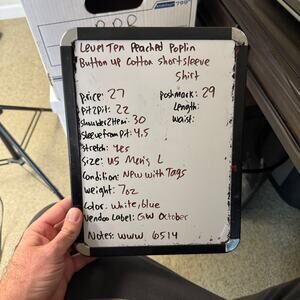 Level Ten Peached Poplin
Button up Cotton Short Sleeve
Shirt
Price: 27
Poshmark: 29
Pit2Pit: 22
Length:
Shoulder2Hem: 30
Waist:
Sleeve from Pit: 4.5
Stretch: Yes
Size: US Men's L
Condition: New with Tags
Weight: 7oz
Color: White/blue
Vendoo Label: GW October
Notes: WWW 6514